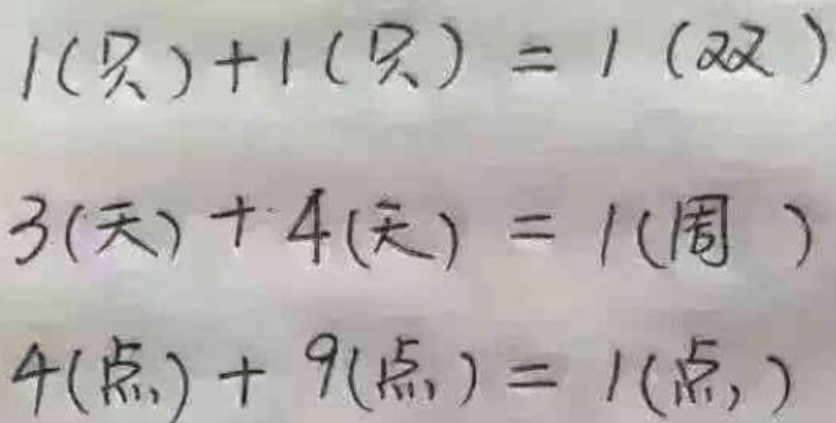 1(只)+1(只)=1(双)
3(天)+4(天)=1(周)
4(点)+9(点)=1(点)